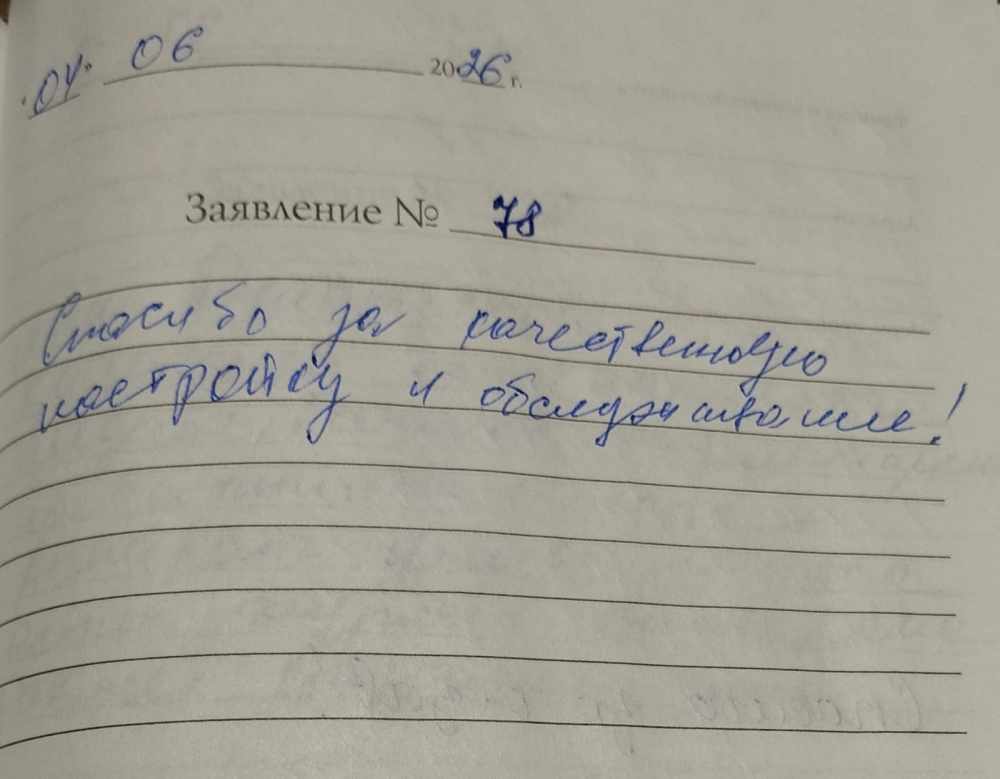 "04" 06 2026 г.
Заявление № 78
Спасибо за качественную
настройку и обслуживание!